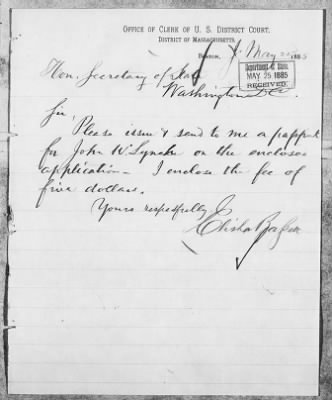 OFFICE OF CLERK OF U. S. DISTRICT COURT,
DISTRICT OF MASSACHUSETTS.
BOSTON, May 1885
Department of State,
MAY 25 1885
RECEIVED.
Hon. Secretary of State
Washington D.C.
Sir,
Please issue & send to me a passport
for John W. on the enclosed
application – I enclose the fee of
five dollars.
Yours respectfully
Elisha Bassett